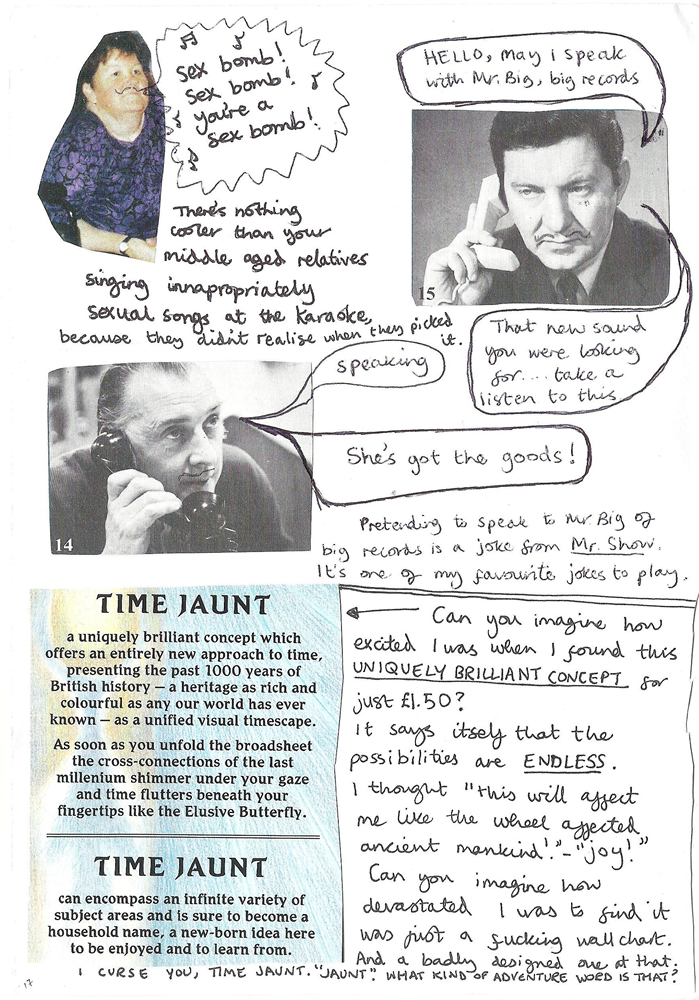 sex bomb!
sex bomb!
you're a
sex bomb!
There's nothing
cooler than your
middle aged relatives
singing innapropriately
sexual songs at the karaoke,
because they didn't realise when they picked
it.
HELLO, may i speak
with Mr. Big, big records
15
That new sound
you were looking
for.... take a
listen to this
speaking
She's got the goods!
14
Pretending to speak to Mr Big of
big records is a joke from Mr. Show.
It's one of my favourite jokes to play.
TIME JAUNT
a uniquely brilliant concept which
offers an entirely new approach to time,
presenting the past 1000 years of
British history – a heritage as rich and
colourful as any our world has ever
known – as a unified visual timescape.
As soon as you unfold the broadsheet
the cross-connections of the last
millenium shimmer under your gaze
and time flutters beneath your
fingertips like the Elusive Butterfly.
TIME JAUNT
can encompass an infinite variety of
subject areas and is sure to become a
household name, a new-born idea here
to be enjoyed and to learn from.
Can you imagine how
excited I was when I found this
UNIQUELY BRILLIANT CONCEPT for
just £1.50?
It says itself that the
possibilities are ENDLESS.
I thought "this will affect
me like the wheel affected
ancient mankind!" - "joy!"
Can you imagine how
devastated I was to find it
was just a fucking wallchart.
And a badly designed one at that.
I CURSE YOU, TIME JAUNT. "JAUNT". WHAT KIND OF ADVENTURE WORD IS THAT?
17